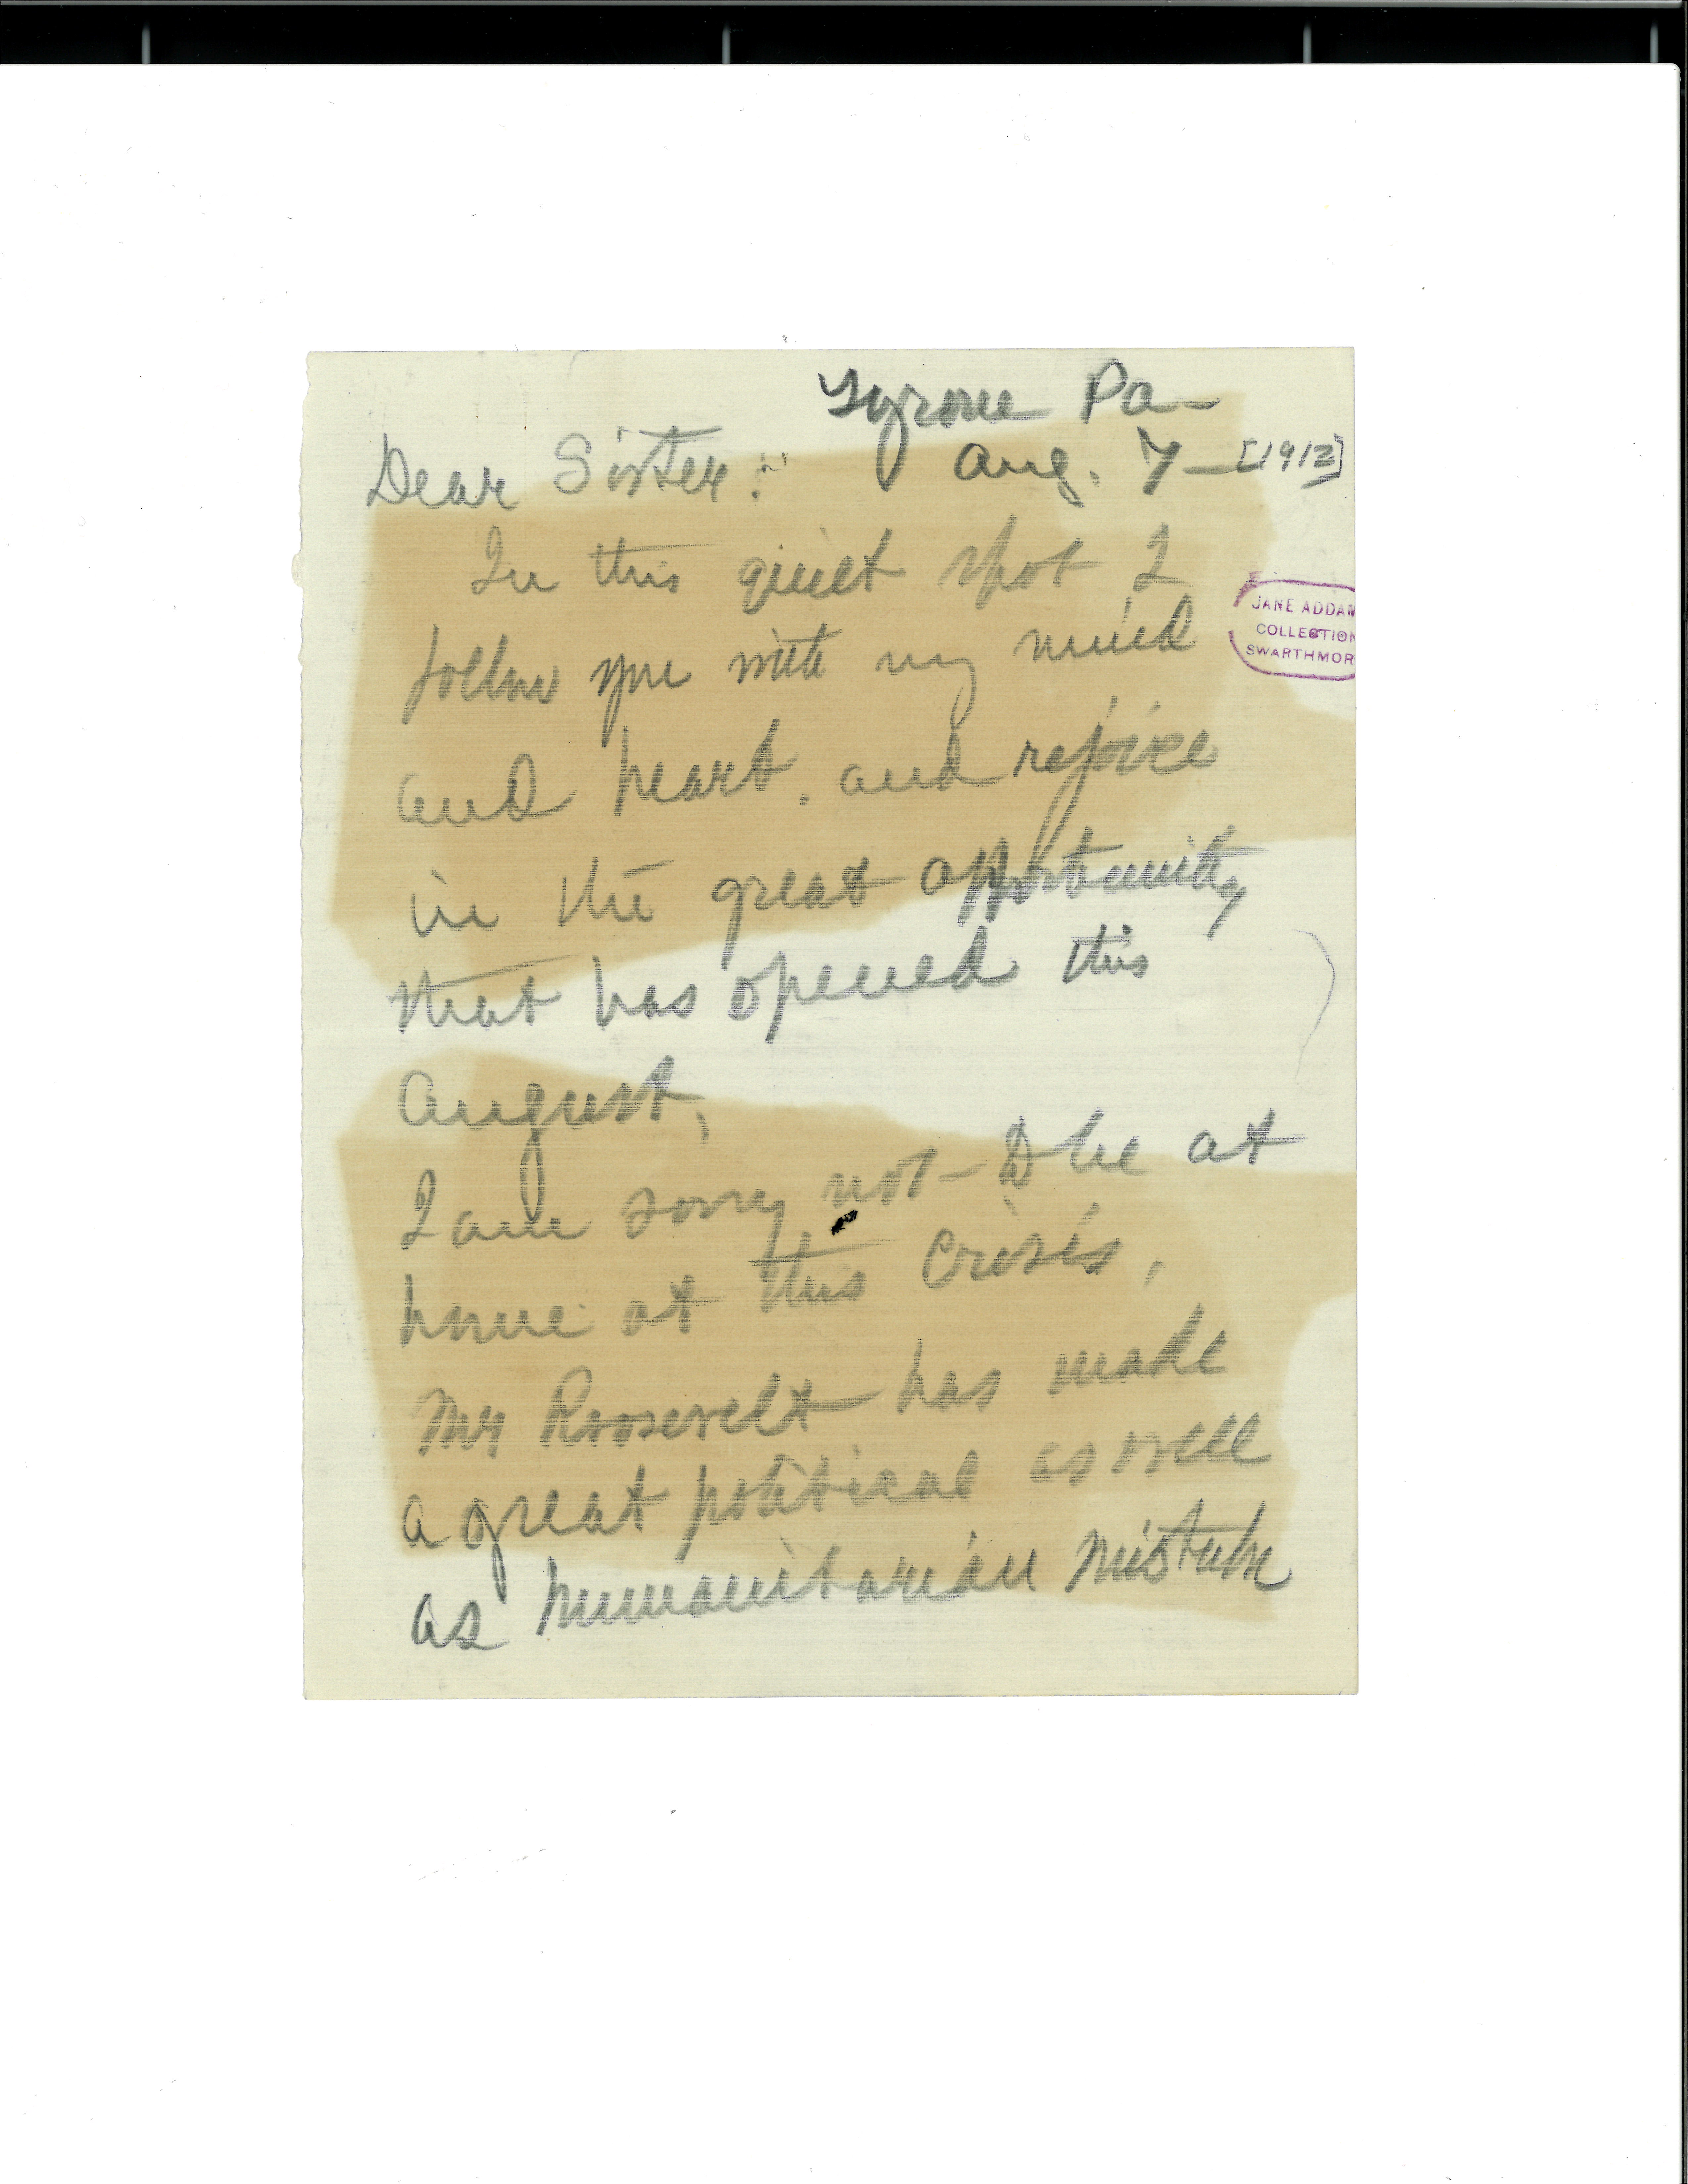 Tyrone Pa—
Dear Sister:
Aug. 7—[1912]
In this quiet spot I
follow you with my mind
and heart, and rejoice
in the great opportunity
that has opened this
August,
I am sorry not to be at
home at this crisis,
Mr Roosevelt has made
a great political as well
as humanitarian mistake
JANE ADDAM
COLLECTION
SWARTHMOR